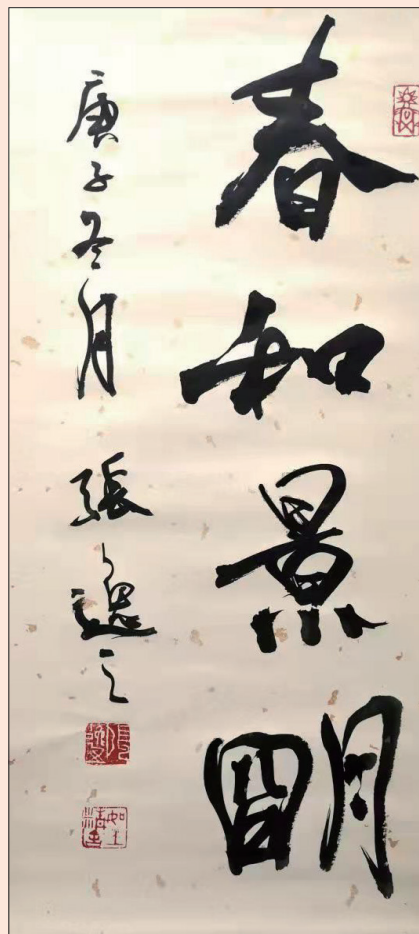 春和景明
庚子冬月
張之